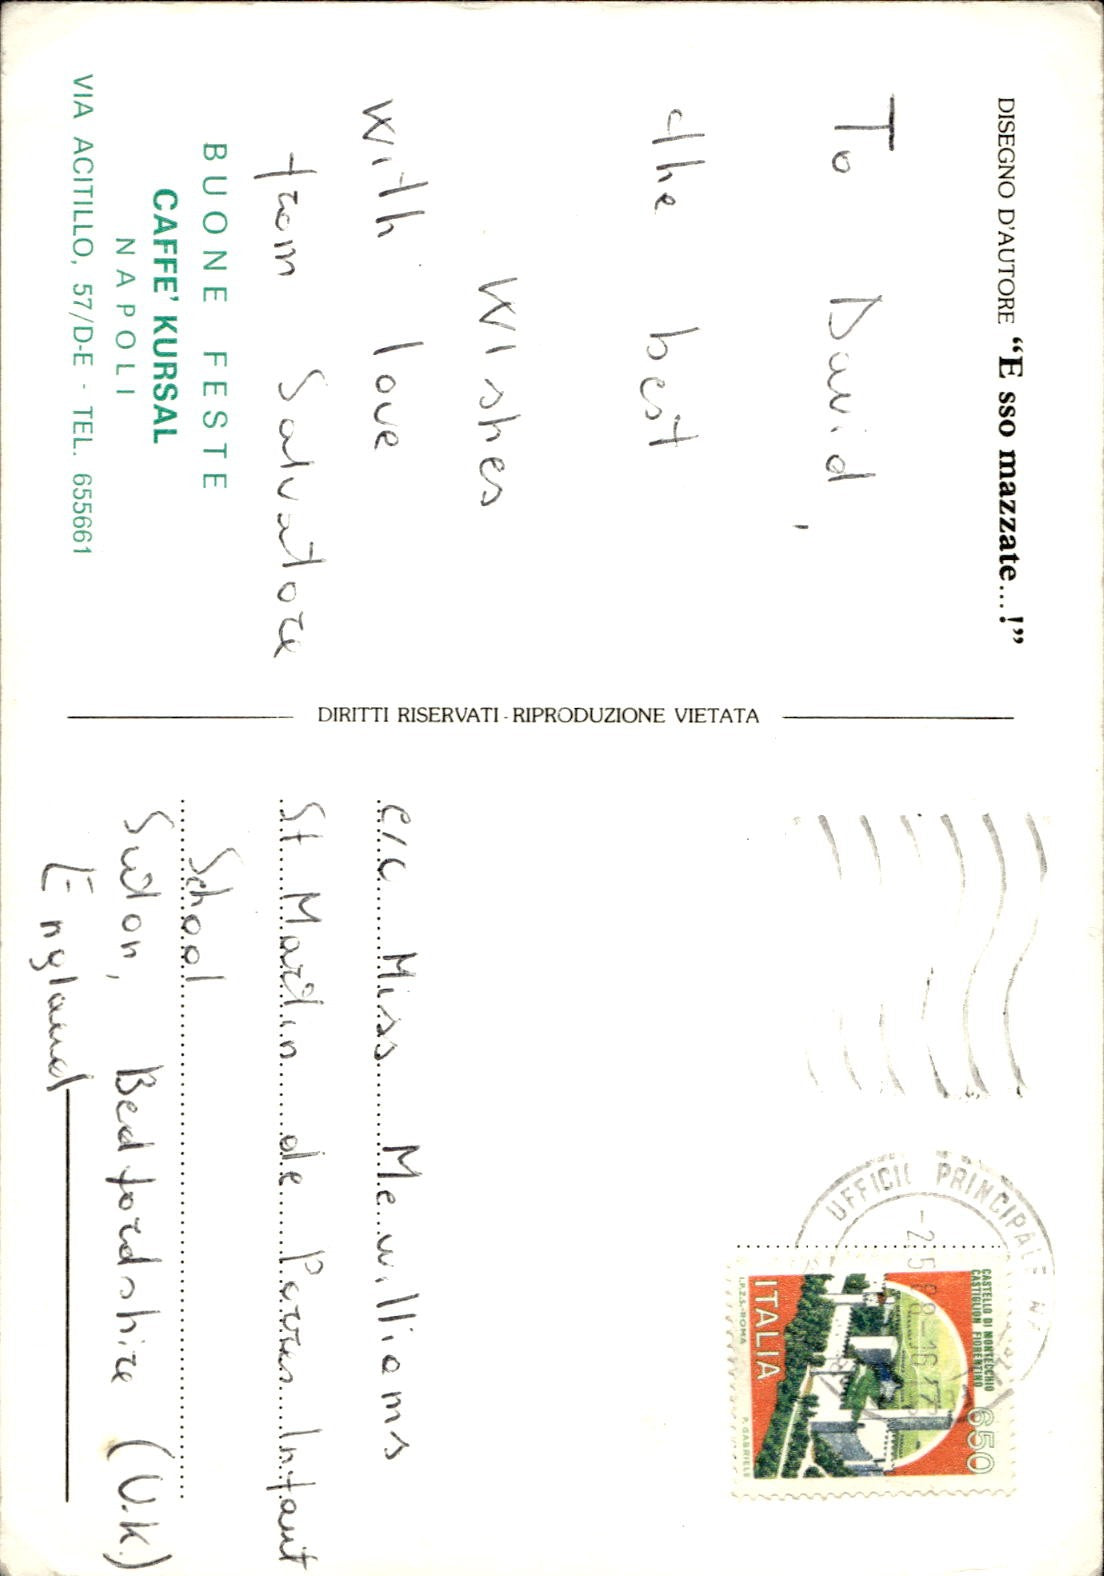 DISEGNO D'AUTORE “E sso mazzate...!”
To David,
the best
wishes
with love
from Salvatore
BUONE FESTE
CAFFE' KURSAL
NAPOLI
VIA ACITILLO, 57/D-E - TEL. 655661
DIRITTI RISERVATI - RIPRODUZIONE VIETATA
UFFICIO PRINCIPALE
-2 5 88-16
CASTELLO DI MONTECCHIO
CASTIGLION FIORENTINO
650
ITALIA
I.P.Z.S.-ROMA P. GABRIELE
c/c Miss Mewilliams
St Martin de Porres Infant
School
Suton, Bedfordshire (U.K.)
England